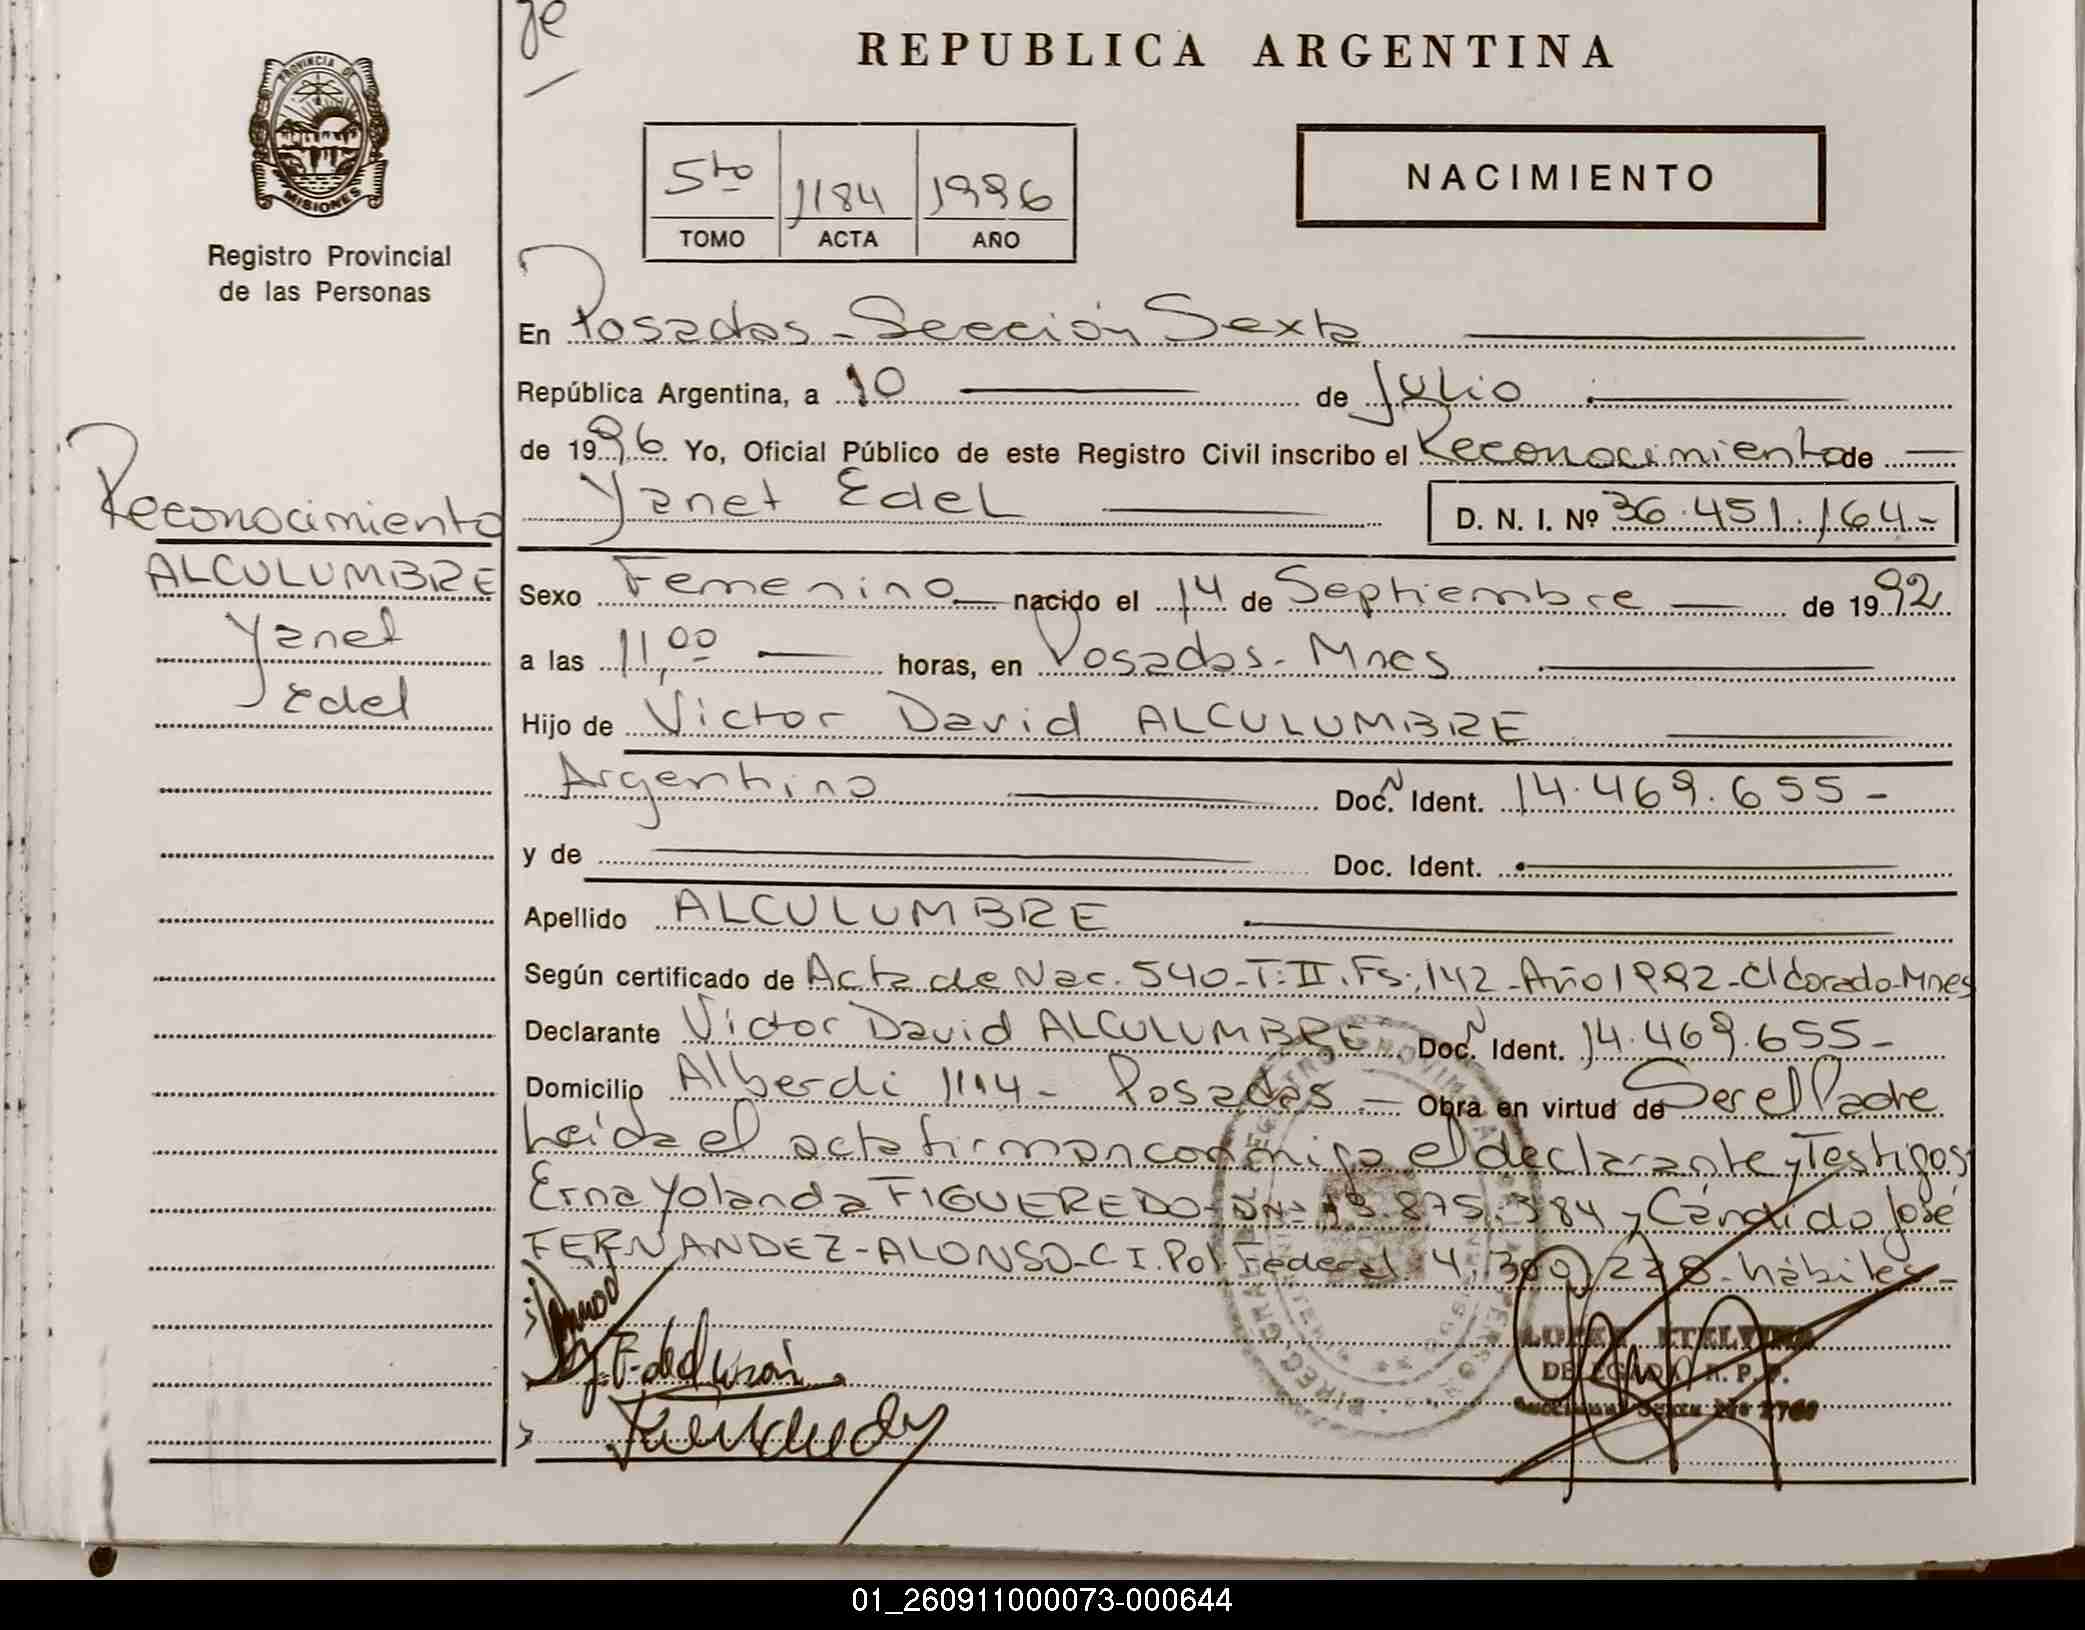 REPUBLICA ARGENTINA
PROVINCIA DE
MISIONES
Registro Provincial
de las Personas
5to 1184 1996
TOMO ACTA AÑO
NACIMIENTO
En Posadas - Sección Sexta
República Argentina, a 10 de Julio
de 1996 Yo, Oficial Público de este Registro Civil inscribo el Reconocimiento de
Yanet Edel D. N. I. Nº 36.451.164-
Reconocimiento
ALCULUMBRE
Yanet
Edel
Sexo Femenino nacido el 14 de Septiembre de 1992
a las 11,00 horas, en Posadas - Mnes
Hijo de Victor David ALCULUMBRE
Argentino Doc. N Ident. 14.469.655-
y de Doc. Ident.
Apellido ALCULUMBRE
Según certificado de Acta de Nac. 540 - T: II. Fs: 142 - Año 1992 - Eldorado - Mnes
Declarante Victor David ALCULUMBRE Doc. N Ident. 14.469.655-
Domicilio Alberdi 1114 - Posadas - Obra en virtud de Ser el Padre
Leída el acta firman conmigo el declarante y Testigos
Erna Yolanda FIGUEREDO - DN 13.875.384 y Cándido José
FERNANDEZ - ALONSO - C I. Pol. Federal 4.300.228 - hábiles -
LOPEZ ETELVINA
DELEGADA R. P. P.
01_260911000073-000644